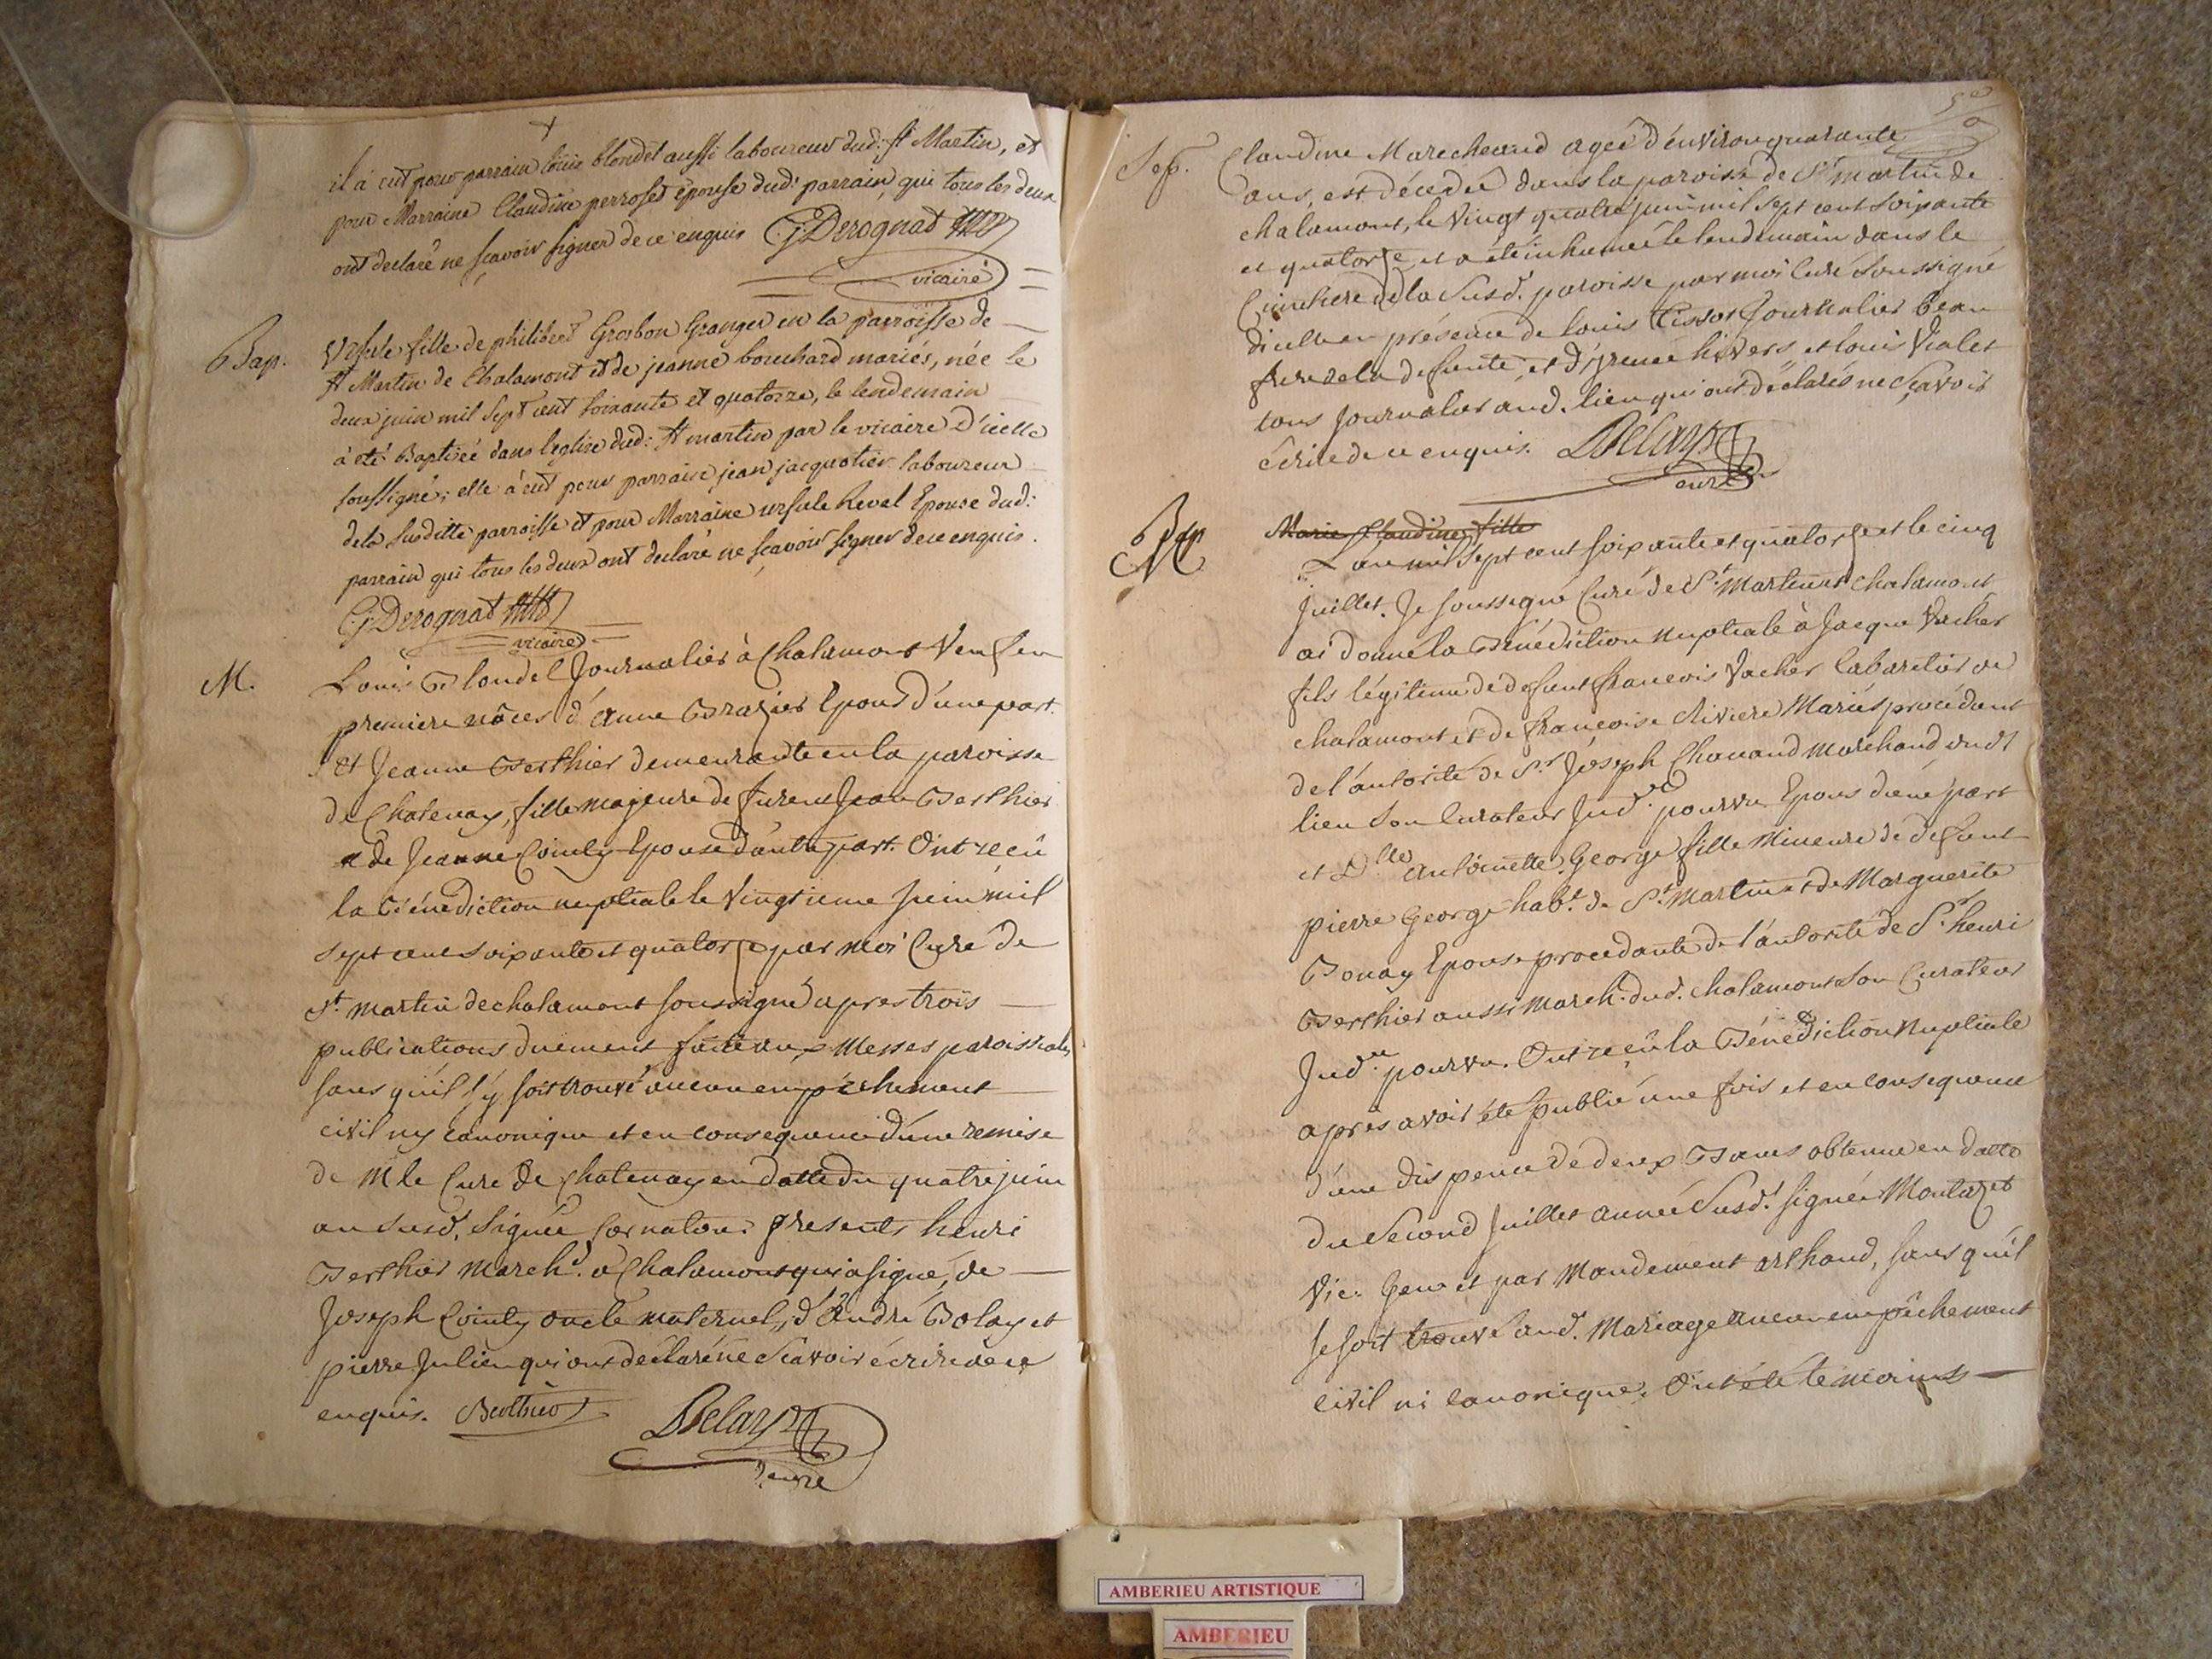 il a eut pour parrain loüis blondel aussi laboureur dud: st Martin, et
pour Marraine Claudine perroset epouse dud: parrain qui tous les deux
ont declaré ne sçavoir signer de ce enquis C.j. Derognat
vicaire
Bap.
Ursule fille de philibert Grosbon Granger en la parroisse de
st Martin de Chalamont et de jeanne bouchard mariés, née le
deux juin mil sept cent soixante et quatorze, le lendemain
à eté Baptisée dans leglise dud: st martin par le vicaire d'icelle
soussigné; elle à eut pour parrain jean jacquotier laboureur
de la susditte parroisse et pour Marraine ursule Revel Epouse dud:
parrain qui tous les deux ont declaré ne sçavoir signer de ce enquis.
C.j. Derognat
vicaire
M.
Louis Blondel Journalier à Chalamont Veuf en
premiere nôces d'Anne Brazier Epoux d'une part.
Et Jeanne Berthier demeurante en la paroisse
de Chatenay, fille majeure de furent Jean Berthier
et de Jeanne Cointy Epouse d'autre part. Ont reçû
la Bénédiction nuptiale le Vingtieme Juin mil
sept cent soixante et quatorze par moi Curé de
St. Martin de chalamont soussigné apres trois
publications düement faite aux Messes paroissiales
sans qu'il s'y soit trouvé aucun empêchement
civil ny canonique et en consequence d'une remise
de M le Curé de Chatenay en datte du quatre juin
an susd. Signée Cornaton. Presents henri
Berthier March.d à Chalamont qui a signé, de
Joseph Cointy oncle maternel, d'André Bolay et
pierre Julien qui ont déclaré ne Scavoir écrire de ce
enquis. Berthier Delarse
curé
Sep.
Claudine Marechaud agée d'environ quarante
ans, est décedée dans la paroisse de St. Martin de
chalamont, le Vingt quatre juin mil sept cent soixante
et quatorze et a été inhumée le lendemain dans le
Cimetiere de la Susd. paroisse par moi Curé Soussigné
dicelle en présence de Louis Tissot Journalier beau
frere de la defunte, et d'yrenée hivers et louis Violet
tous Journalier aud. lieu qui ont déclarés ne Scavoir
écrire de ce enquis. Delarse
curé
Bap
M
Marie Claudine fille
L'an mil Sept cent soixante et quatorze et le cinq
Juillet. Je soussigné Curé de St. Martin et Chalamont
ai donné la Bénédiction Nuptiale à Jacque Vacher
fils légitime de defunt françois Vacher Cabaretier de
chalamont et de françoise Riviere Mariés procédant
de l'autorité de Sr. Joseph Chavand Marchand aud.
lieu Son Curateur Jud.re pourvu Epoux d'une part
et D.lle Antoinette George fille Mineure de defunt
pierre George hab.t de St. Martin et de Marguerite
Bouay Epouse procedante de l'autorité de Sr. henri
Berthier aussi March. dud. Chalamont Son Curateur
Jud.re pourvu. Ont reçû la Bénédiction Nuptiale
après avoir été publié une fois et en consequence
d'une dispence de deux Bans obtenue en datte
du Second Juillet année Susd. Signée Montazet
Vic. Gene et par Mandement arthaud, sans qu'il
se soit trouvé aud. Mariage aucun empêchement
civil ni canonique. Ont été temoins
AMBERIEU ARTISTIQUE
AMBERIEU